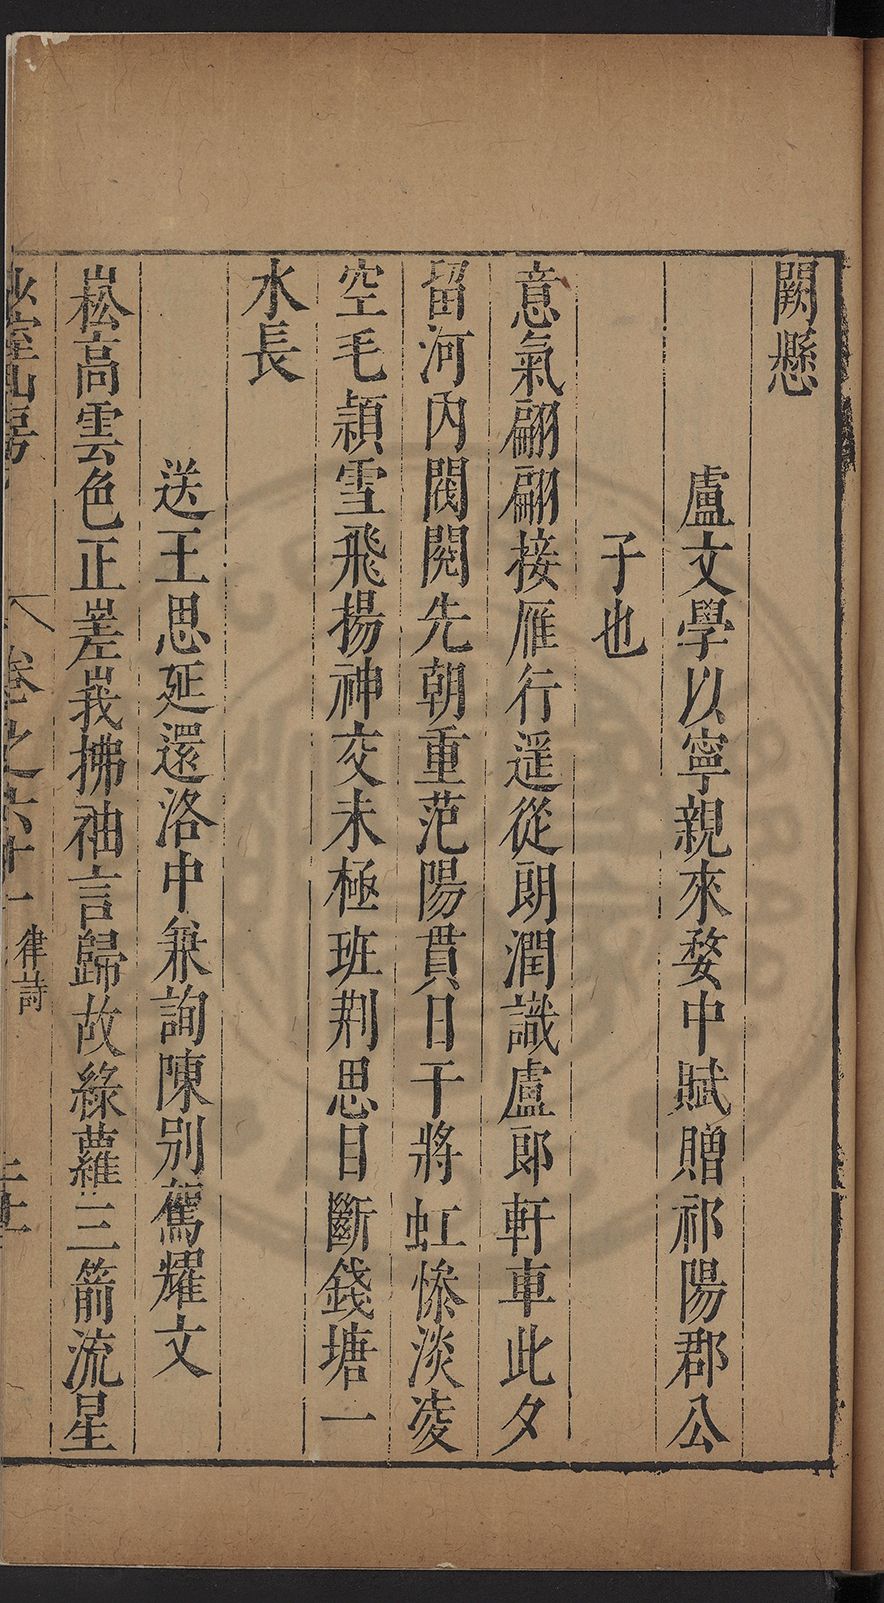 闕懸
盧文學以寧親來婺中賦贈祁陽郡公
子也
意氣翩翩接雁行遥從朗潤識盧郎軒車此夕
留河内閥閱先朝重范陽貫日干將虹慘淡凌
空毛穎雪飛揚神交未極班荆思目斷錢塘一
水長
送王思延還洛中兼詢陳别駕耀文
崧高雲色正嵳峩拂袖言歸故綠蘿三箭流星
卷之六十一 律詩